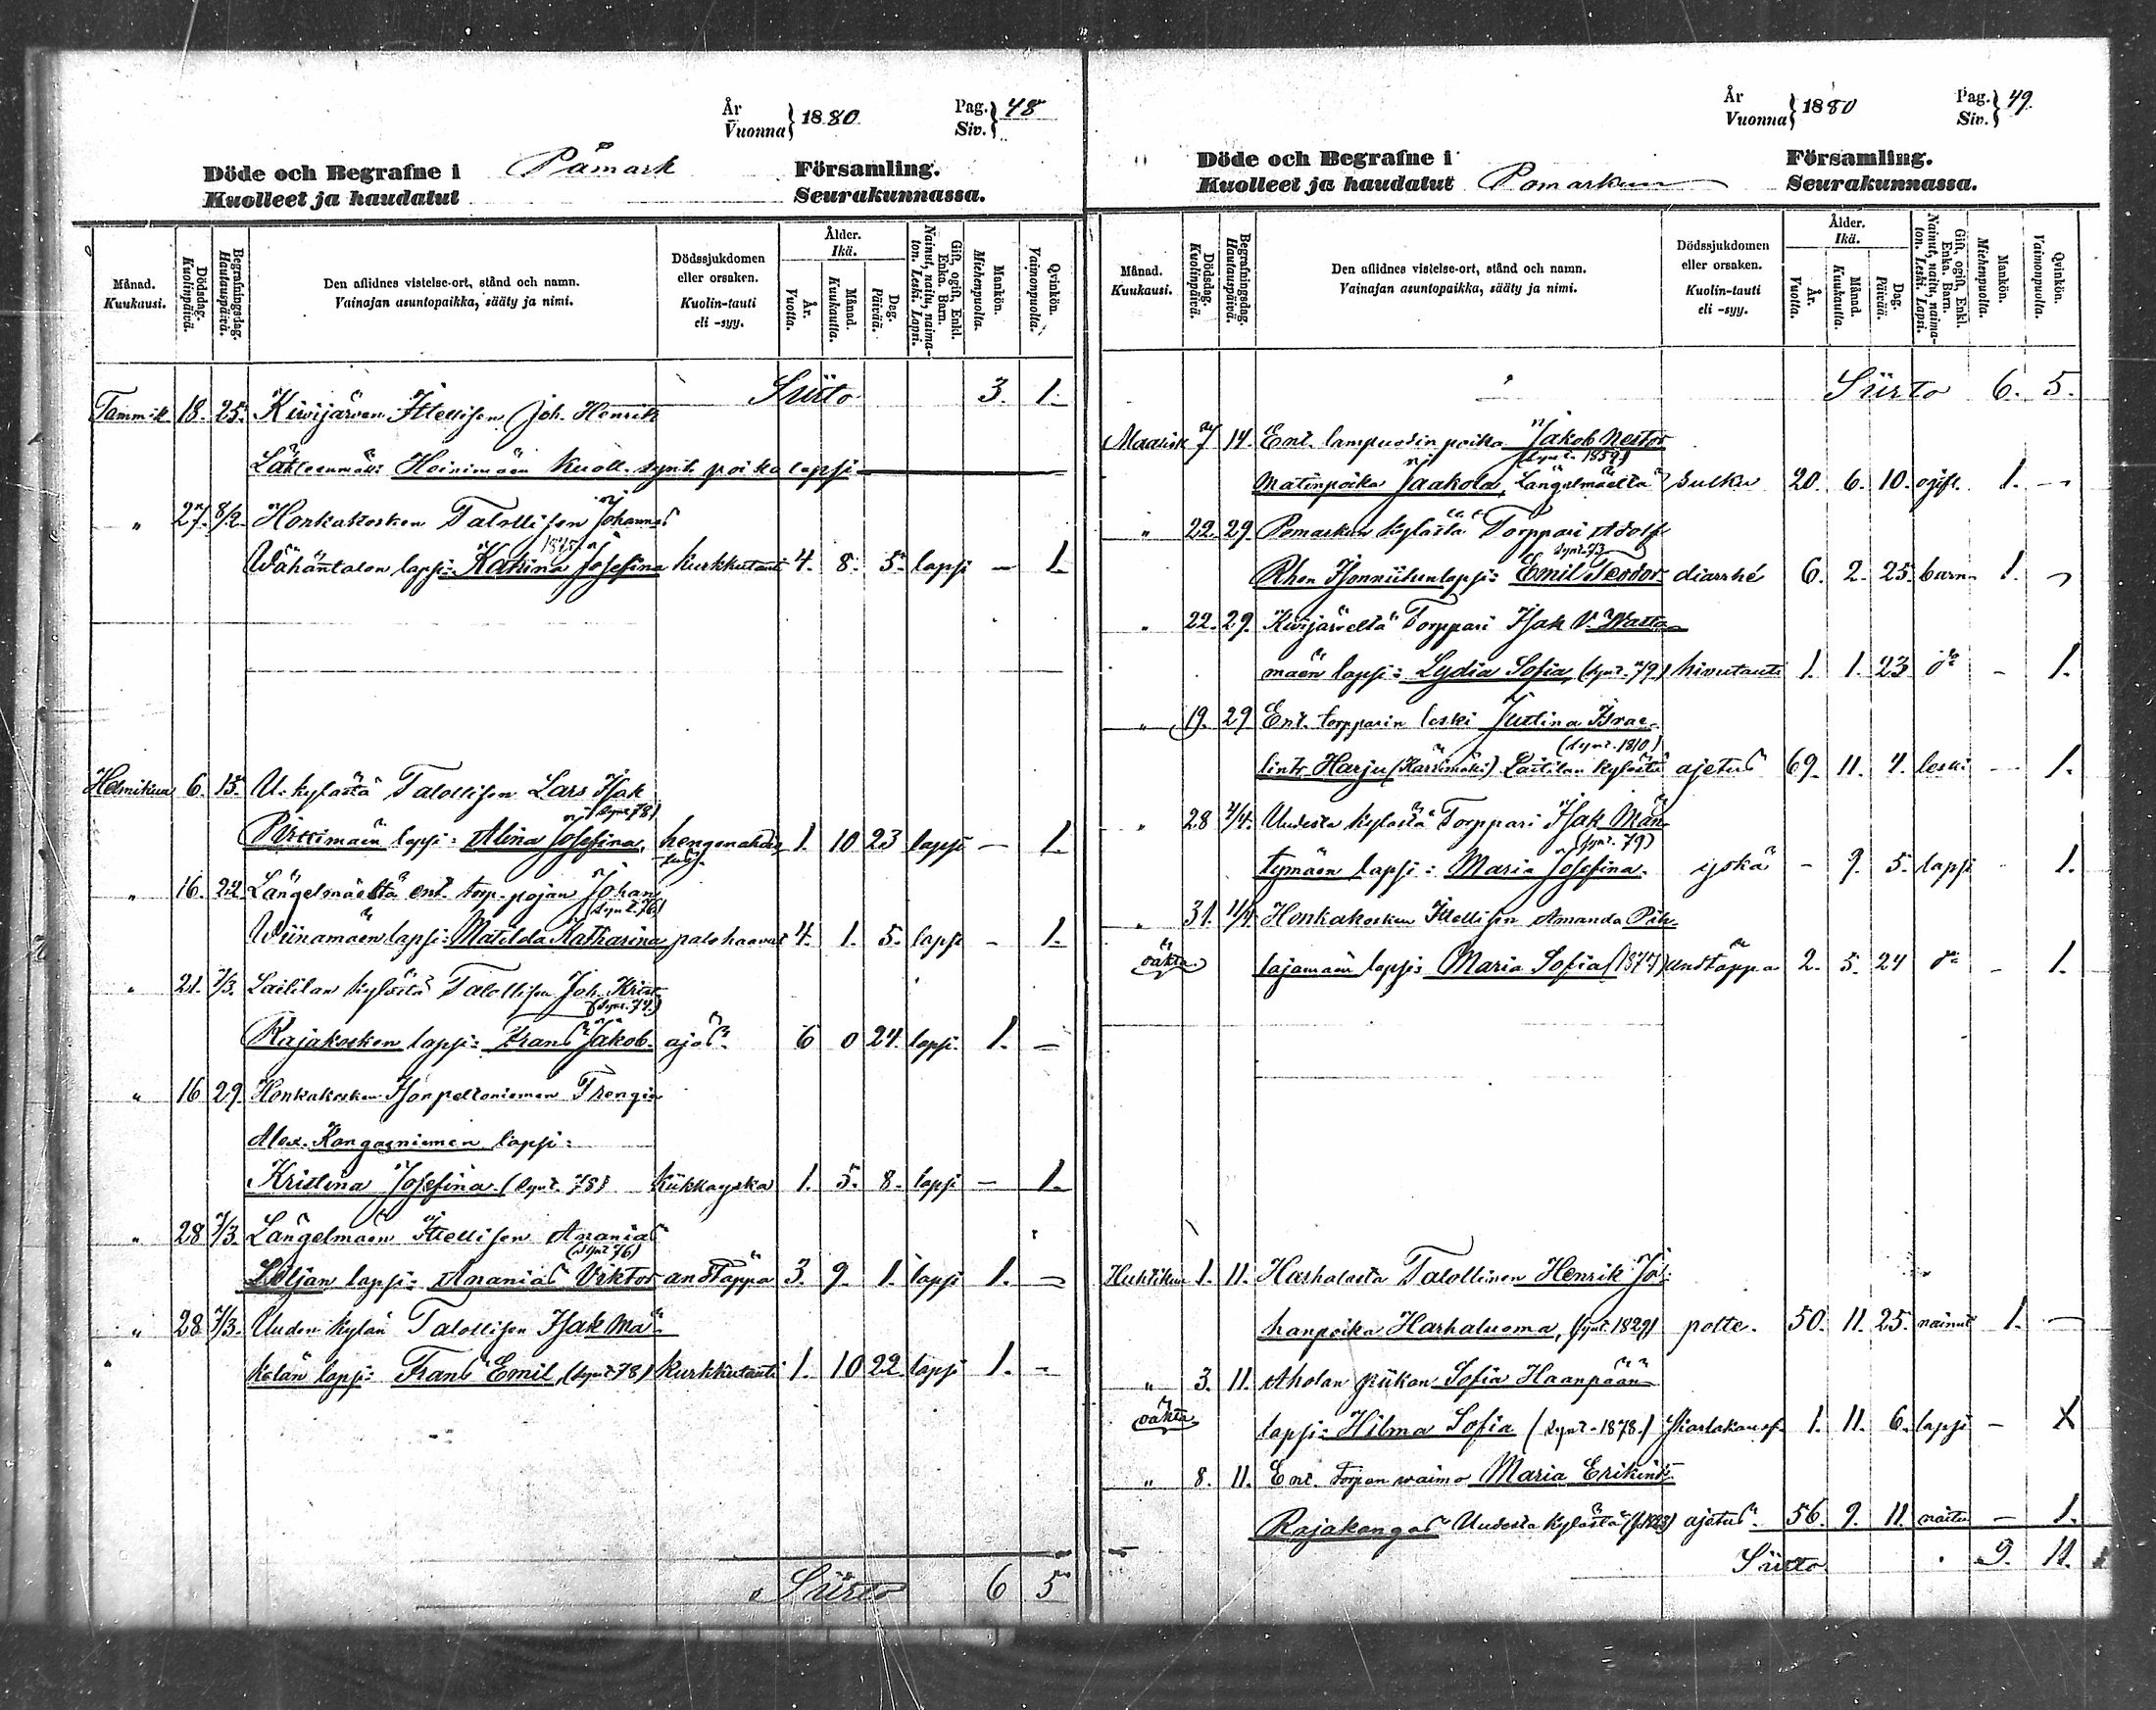 År
Vuonna } 1880. Pag.
Siv. } 48
Döde och Begrafne i Påmark Församling.
Kuolleet ja haudatut Seurakunnassa.
Månad. Kuukausi. Dödsdag. Kuolinpäivä. Begrafningsdag. Hautauspäivä. Den aflidnes vistelse-ort, stånd och namn. Vainajan asuntopaikka, sääty ja nimi. Dödssjukdomen eller orsaken. Kuolin-tauti eli -syy. Ålder. Ikä. År. Vuotta. Månad. Kuukautta. Dag. Päivää. Gift, ogift, Enkl. Enka. Barn. Nainut, naitu, naimaton. Leski. Lapsi. Mankön. Miehenpuolta. Qvinkön. Vaimonpuolta.
Siirto 3. 1.
Tammik. 18. 25. Kiwijärven Ittellisen Joh. Henrik
Heinimäen kuoll. synt. poika lapsi
" 27. 8/2. Honkakosken Talollisen Johannes
Wähäntalon lapsi: Katrina Josefina kurkkutauti 4. 8. 5. lapsi — 1.
Helmikuu 6. 15. U. kylästä Talollisen Lars Isak
(synt. 78)
Pirttimäen lapsi: Alina Josefina, hengenahdis- 1. 10 23 lapsi — 1.
tus.
" 16. 22. Längelmäeltä ent. torp. pojan Johan
(synt. 76)
Wiinamäen lapsi: Matilda Katharina palohaavat 4. 1. 5. lapsi - 1.
" 21. 7/3. Laililan kylästä Talollisen Joh. Krist.
(synt. 74.)
Rajakosken lapsi: Frans Jakob. ajos. 6 0 24. lapsi. 1. —
" 16 29. Honkakosken Isonpeltoniemen Trengin
Alex. Kangasniemen lapsi:
Kristina Josefina. (synt. 78) kükkayskä 1. 5. 8. lapsi — 1.
" 28 7/3. Längelmäen Ittellisen Ananias
(synt 76)
Liljan lapsi: Ananias Viktor andtäppa 3. 9. 1. lapsi 1. —
" 28 7/3. Uuden kylän Talollisen Isak Mä-
kelän lapsi: Frans Emil, (synt 78) kurkkutauti 1. 10 22. lapsi 1. -
Siirto 6 5
År
Vuonna } 1880 Pag.
Siv. } 49.
Döde och Begrafne i Församling.
Kuolleet ja haudatut Pomarkun Seurakunnassa.
Månad. Kuukausi. Dödsdag. Kuolinpäivä. Begrafningsdag. Hautauspäivä. Den aflidnes vistelse-ort, stånd och namn. Vainajan asuntopaikka, sääty ja nimi. Dödssjukdomen eller orsaken. Kuolin-tauti eli -syy. Ålder. Ikä. År. Vuotta. Månad. Kuukautta. Dag. Päivää. Gift, ogift, Enkl. Enka. Barn. Nainut, naitu, naimaton. Leski. Lapsi. Mankön. Miehenpuolta. Qvinkön. Vaimonpuolta.
Siirto 6. 5.
Maalisk. 7 14. Ent. lampuodin poika Jakob Nestor
(synt. 1859)
Matinpoika Jaakola, Längelmäeltä 20. 6. 10. ogift. 1. —
" 22. 29. Pomarkun kylästä Torppari Adolf
synt. 73
Rhen Isonniitun lapsi: Emil Teodor diarrhé 6. 2. 25. barn 1. —
" 22. 29. Kiwijärveltä Torppari Isak V. Watta-
mäen lapsi: Lydia Sofia, (synt. 79) hivutauti 1. 1. 23 do - 1.
" 19. 29 Ent. torpparin leski Justina Israe-
(synt. 1810)
lintr. Harju (Harjumäki) Laililan kylästä ajetus 69. 11. 4. leski - 1.
" 28 4/4. Uudesta kylästä Torppari Isak Män-
(synt. 79)
tymäen lapsi: Maria Josefina. yskä - 9. 5. lapsi - 1.
" 31. 11/4. Honkakosken Ittellisen Amanda Pih-
oäkta. lajamäen lapsi: Maria Sofia (1877) andtäppa 2. 5. 24 do - 1.
Huhtikuu 1. 11. Harhalasta Talollinen Henrik Jo-
hanpoika Harhaluoma, (synt. 1829) polte. 50. 11. 25. nainut 1. —
" 3. 11. Aholan piikan Sofia Haanpään
oäkta. lapsi: Hilma Sofia (synt. 1878.) 1. 11. 6. lapsi - X
" 8. 11. Ent. torpan waimo Maria Erikint.
Rajakangas Uudesta kylästä ajetus. 56. 9. 11. naitu — 1.
Siirto 9. 11.